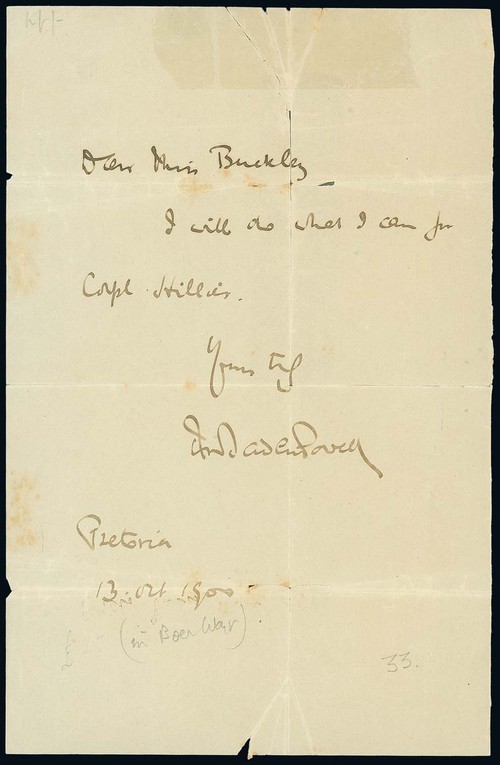 Dear Miss Buckley
I will do what I can for
Corpl. Hillier.
Yours try
RSBadenPowell
Pretoria
13. Oct 1900
(in Boer War)
33.